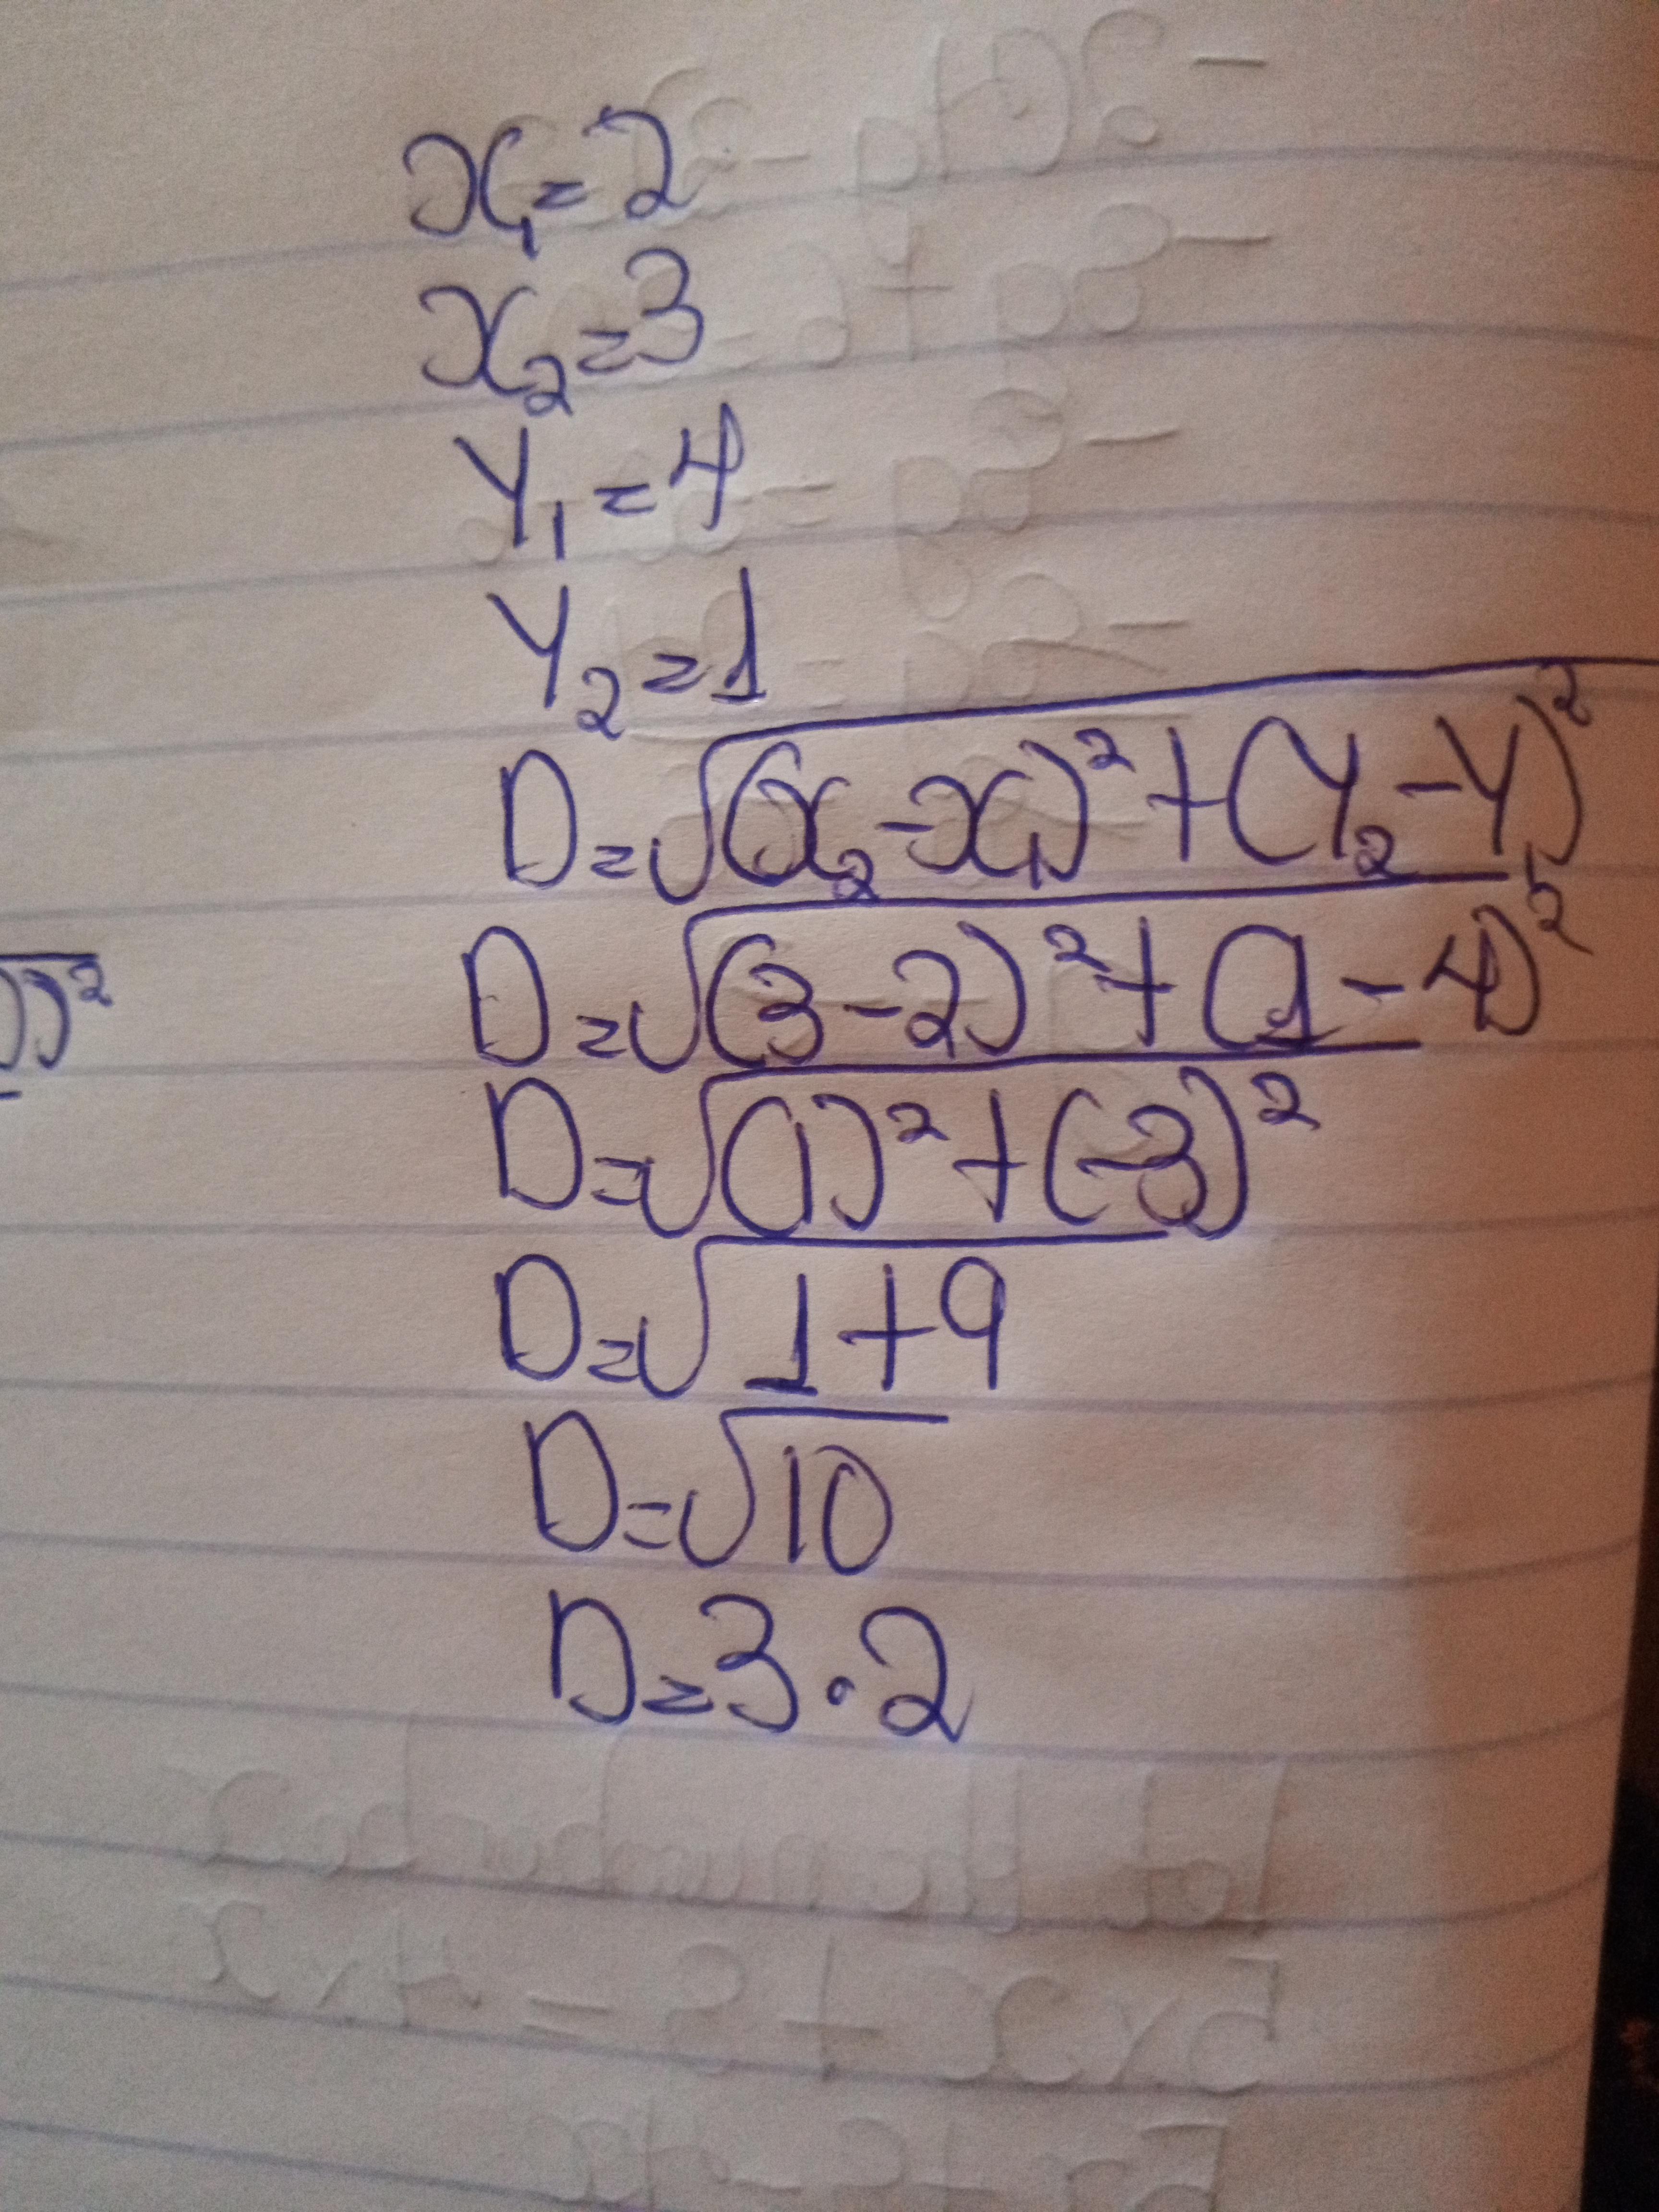 x₁=2
x₂=3
Y₁=4
Y₂=1
D=√(x₂-x₁)²+(Y₂-Y₁)²
))²
D=√(3-2)²+(1-4)²
D=√(1)²+(-3)²
D=√1+9
D=√10
D=3·2